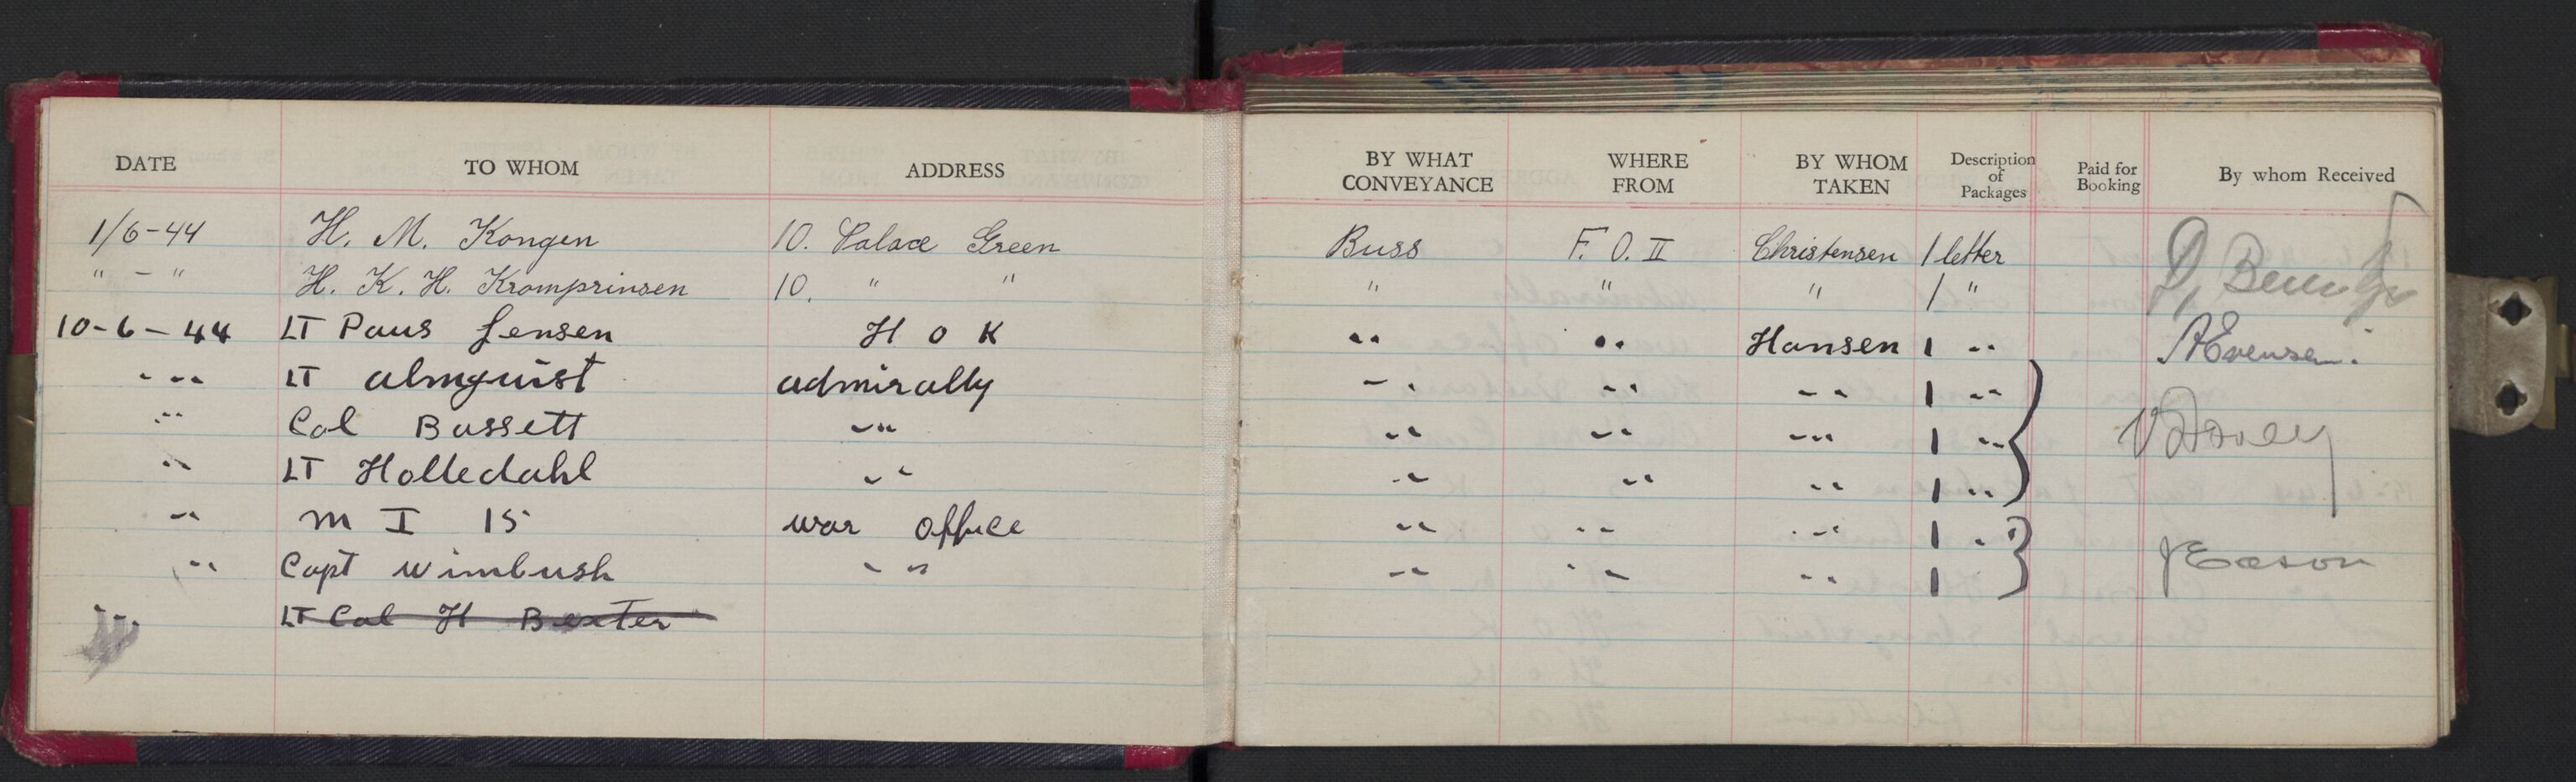 DATE TO WHOM ADDRESS BY WHAT CONVEYANCE WHERE FROM BY WHOM TAKEN Description of Packages Paid for Booking By whom Received
1/6-44 H. M. Kongen 10. Palace Green Buss F. O. II Christensen 1 letter
" - " H. K. H. Kromprinsen 10. " " " " " 1 "
10-6-44 LT Paus Jensen H O K " " Hansen 1 " AEvensen.
" " LT almquist admirally " " " 1 "
" Col Bassett " " " " 1 "
" LT Holledahl " " " " 1 "
" M I 15 war office " " " 1 "
" Capt Wimbush " " " " 1 JEason
" LT Col H Bexter